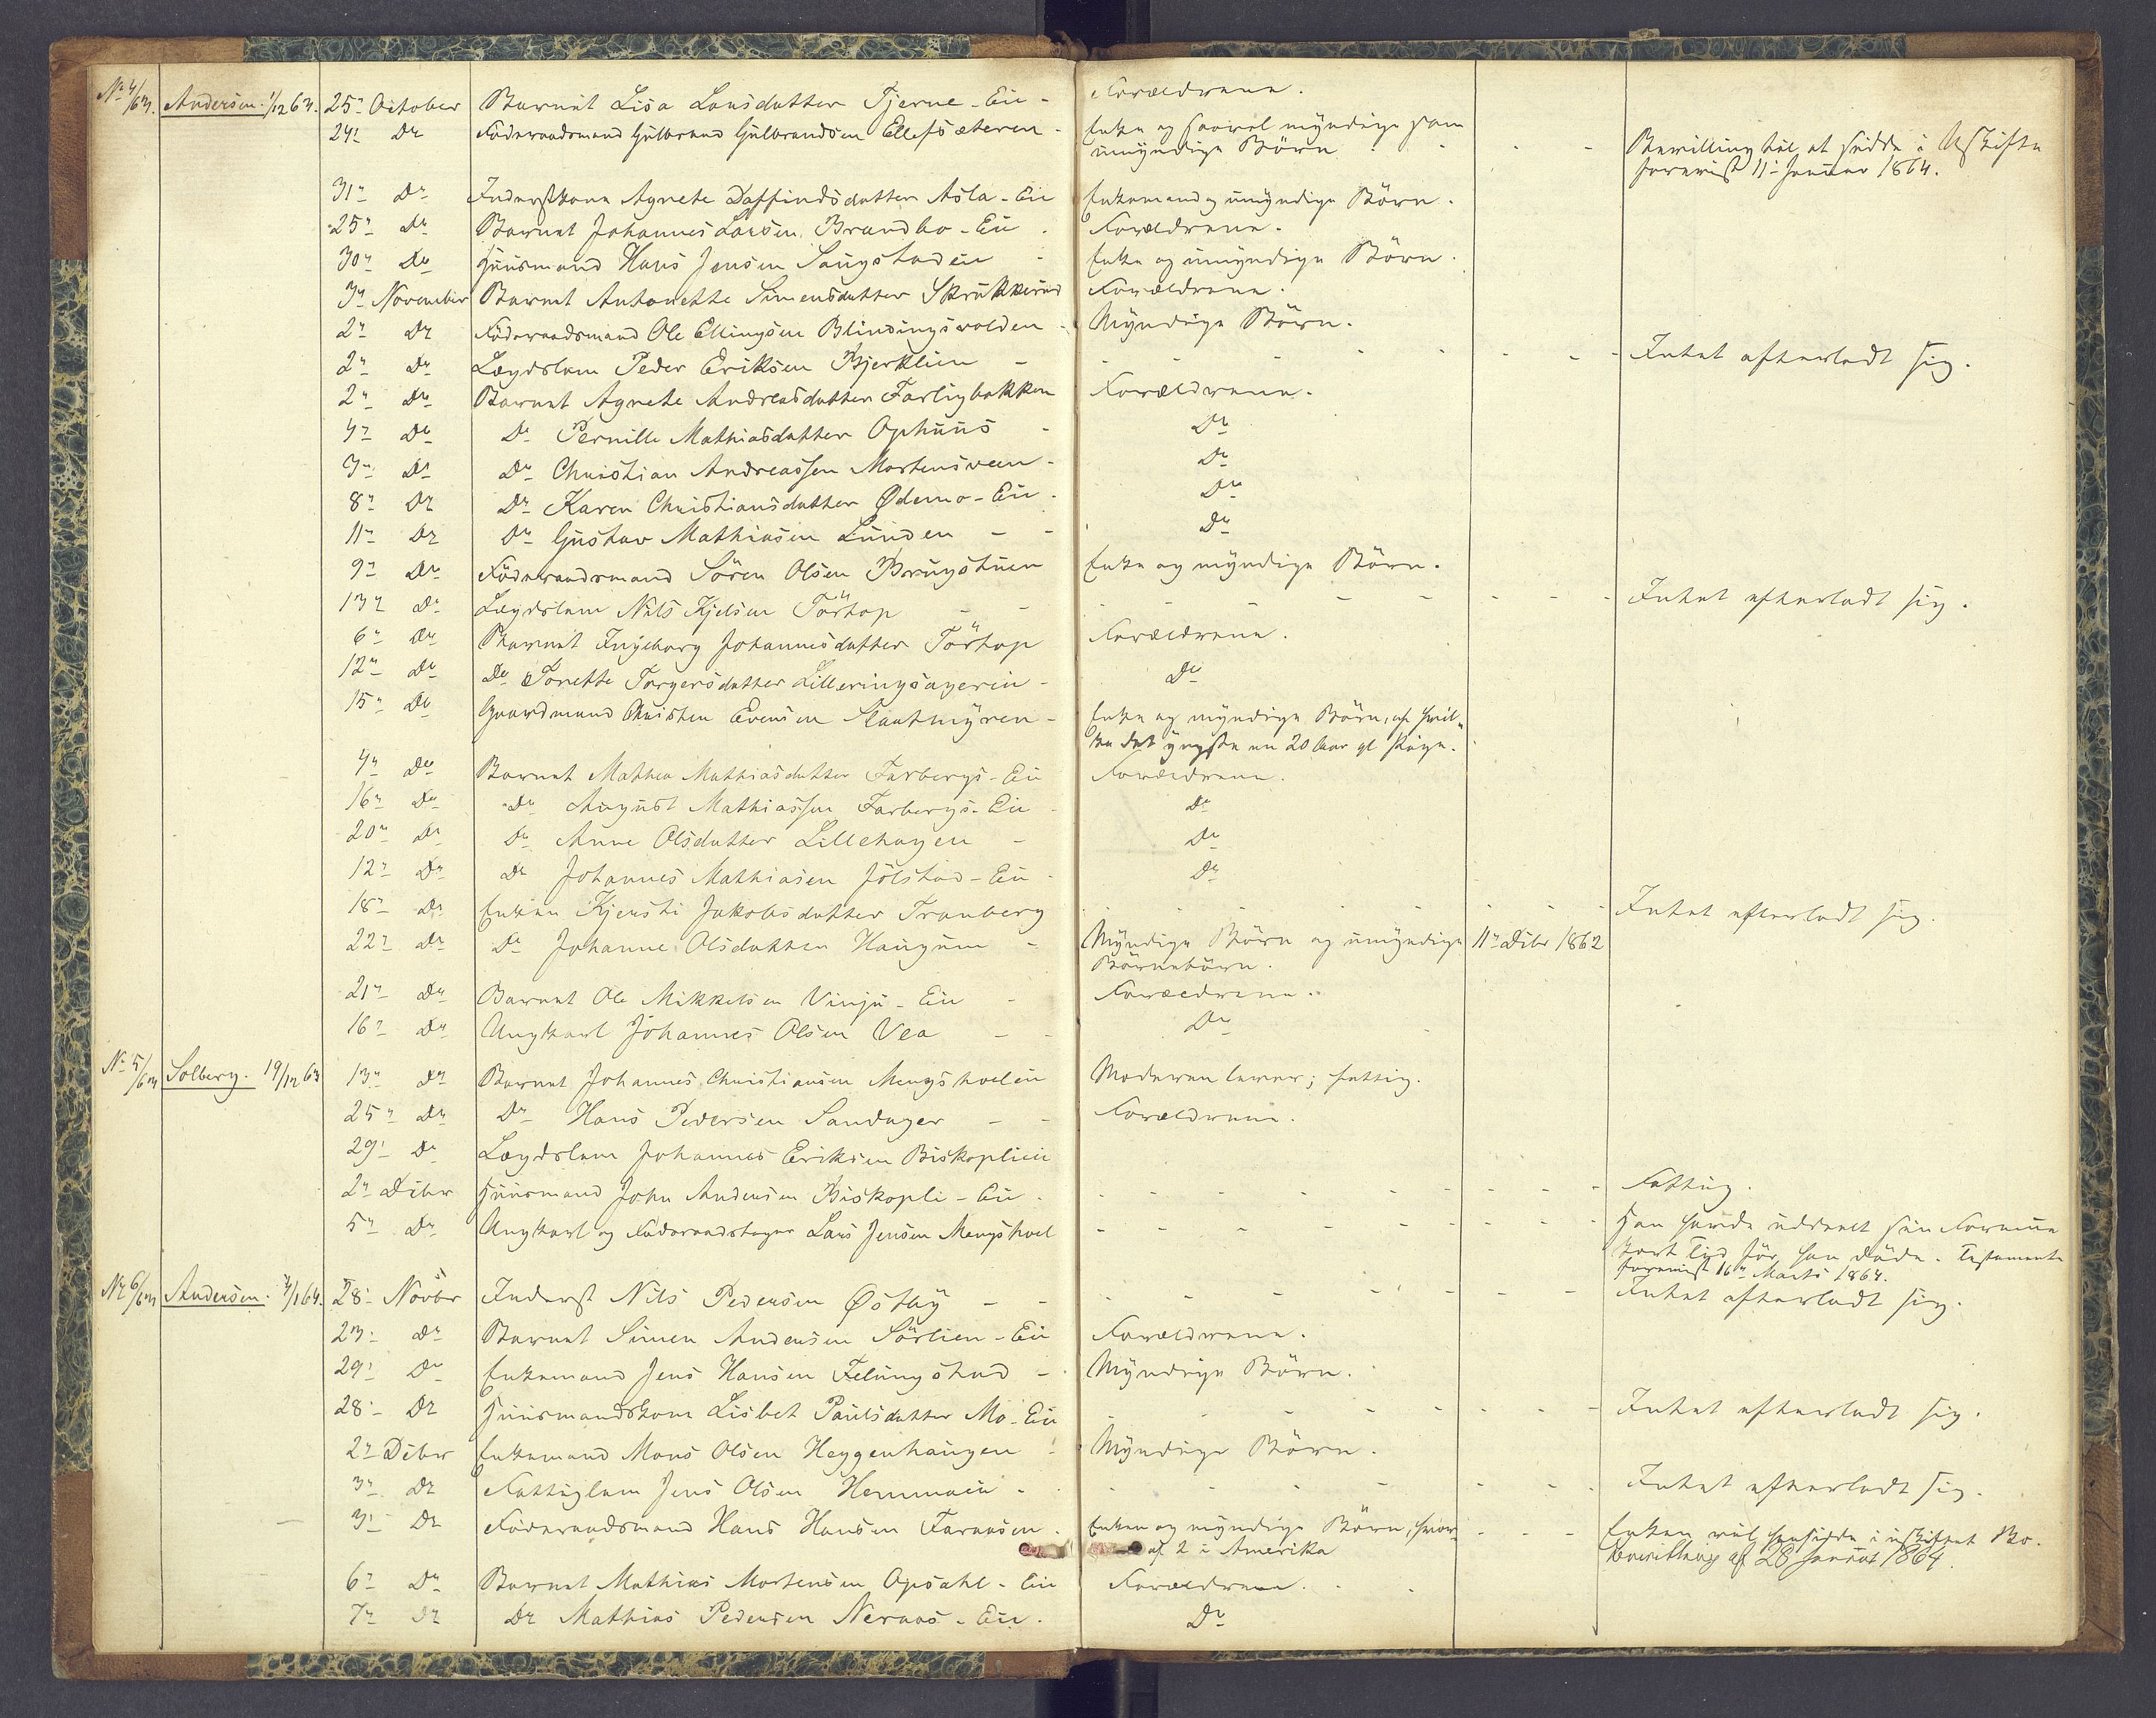 No 4/63. Andersen. 1/12 63. 25de October Barnet Lisa Larsdatter Tjerne-Eie - Forældrene.
24. Do Föderaadsmand Gulbrand Gulbrandsen Ellefsæteren - Enke og saavel myndige som
umyndige Börn. - - - Bevilling til at sidde i Uskifte
forevist 11te Januar 1864.
31te Do Inderstkone Agnete Daffindsdatter Asla-Eie Enkemand og umyndige Börn.
25de Do Barnet Johannes Larsen Brandbo-Eie. Forældrene.
30te Do Huusmand Hans Jensen Saugstadeie - Enke og umyndige Börn.
3de November Barnet Antonette Simensdatter Skrukkerud Forældrene.
2de Do Föderaadsmand Ole Ellingsen Blindingsvolden - Myndige Börn.
2de Do Lægdslem Peder Eriksen Bjerklien - - - - - Intet efterladt sig.
2de Do Barnet Agnete Andreasdatter Farligbakken Forældrene.
4de Do Do Pernille Mathiasdatter Ophuus - Do
3de Do Do Christian Andreassen Mortensveen - Do
8de Do Do Karen Christiansdatter Ødemo-Eie. Do
11te Do Do Gustav Mathiasen Lunden - - Do
9de Do Föderaadsmand Sören Olsen Brugstuen Enke og myndige Börn.
13de Do Lægdslem Nils Kjelsen Törtop - - - - - Intet efterladt sig.
6te Do Barnet Ingeborg Johannesdatter Törtop Forældrene.
12te Do Do Tonette Torgersdatter Lilleringsageren - Do
15de Do Gaardmand Christen Evensen Slaatmyren - Enke og myndige Börn, af hvil-
ke det yngste en 20 Aar gl Pige.
4de Do Barnet Mathea Mathiasdatter Farbergs-Eie Forældrene.
16de Do Do August Mathiassen Farbergs-Eie - Do
20de Do Do Anne Olsdatter Lillehagen - Do
12te Do Do Johannes Mathiasen Jölstad-Eie - Do
18de Do Enken Kjersti Jakobsdatter Tranberg - - - - Intet efterladt sig.
22de Do Do Johanne Olsdatter Haugum - Myndige Börn og umyndige 11te Dcbr 1862
Börnebörn.
21de Do Barnet Ole Mikkelsen Vinju-Eie - Forældrene.
16de Do Ungkarl Johannes Olsen Vea - - Do
No 5/63 Solberg. 19/12 63 13de Do Barnet Johannes Christiansen Mengshoelen Moderen lever; fattig.
25de Do Do Hans Pedersen Sandager - - Forældrene.
29. Do Lægdslem Johannes Eriksen Biskoplien
2de Dcbr Huusmand John Andersen Biskopli-Eie. - - - - - Fattig.
5te Do Ungkarl og Föderaadstager Lars Jensen Mengshoel - - - - - Han havde uddeelt sin Formue
kort Tid för han döde. Testamente
forevist 16de Marts 1864.
No 6/63 Andersen. 4/1 64. 28. Novbr Inderst Nils Pedersen Østby - - - - - Intet efterladt sig.
23. Do Barnet Simen Andersen Sörlien-Eie Forældrene.
29. Do Enkemand Jens Hansen Felungstad - Myndige Börn.
28. Do Huusmandskone Lisbet Paulsdatter Mo-Eie - - - - Intet efterladt sig.
2de Dcbr Enkemand Mons Olsen Heggenhaugen - Myndige Börn.
3de Do Fattiglem Jens Olsen Hemmaeie - - - - Intet efterladt sig.
3. Do Föderaadsmand Hans Hansen Faraasen. Enken og myndige Börn, hvor-
af 2 i Amerika - - - Enken vil hensidde i uskiftet Bo.
Bevilling af 28 Januar 1864.
6te Do Barnet Mathias Mortensen Opsahl-Eie Forældrene.
7de Do Do Mathias Pedersen Neraas-Eie. Do